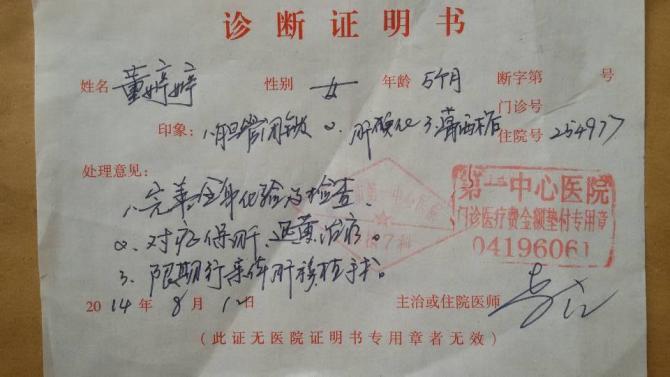 诊断证明书
姓名 董婷婷 性别 女 年龄 5个月 断字第 号
门诊号
印象: 1.胆管闭锁 2. 肝硬化 3.葛西术后 住院号 254977
处理意见:
1、完善全身化验及检查
2. 对症保肝、退黄治疗。
3. 限期行亲体肝移植手术。
第一中心医院
门诊医疗费金额垫付专用章
04196061
2014年8月12日 主治或住院医师
(此证无医院证明书专用章者无效)